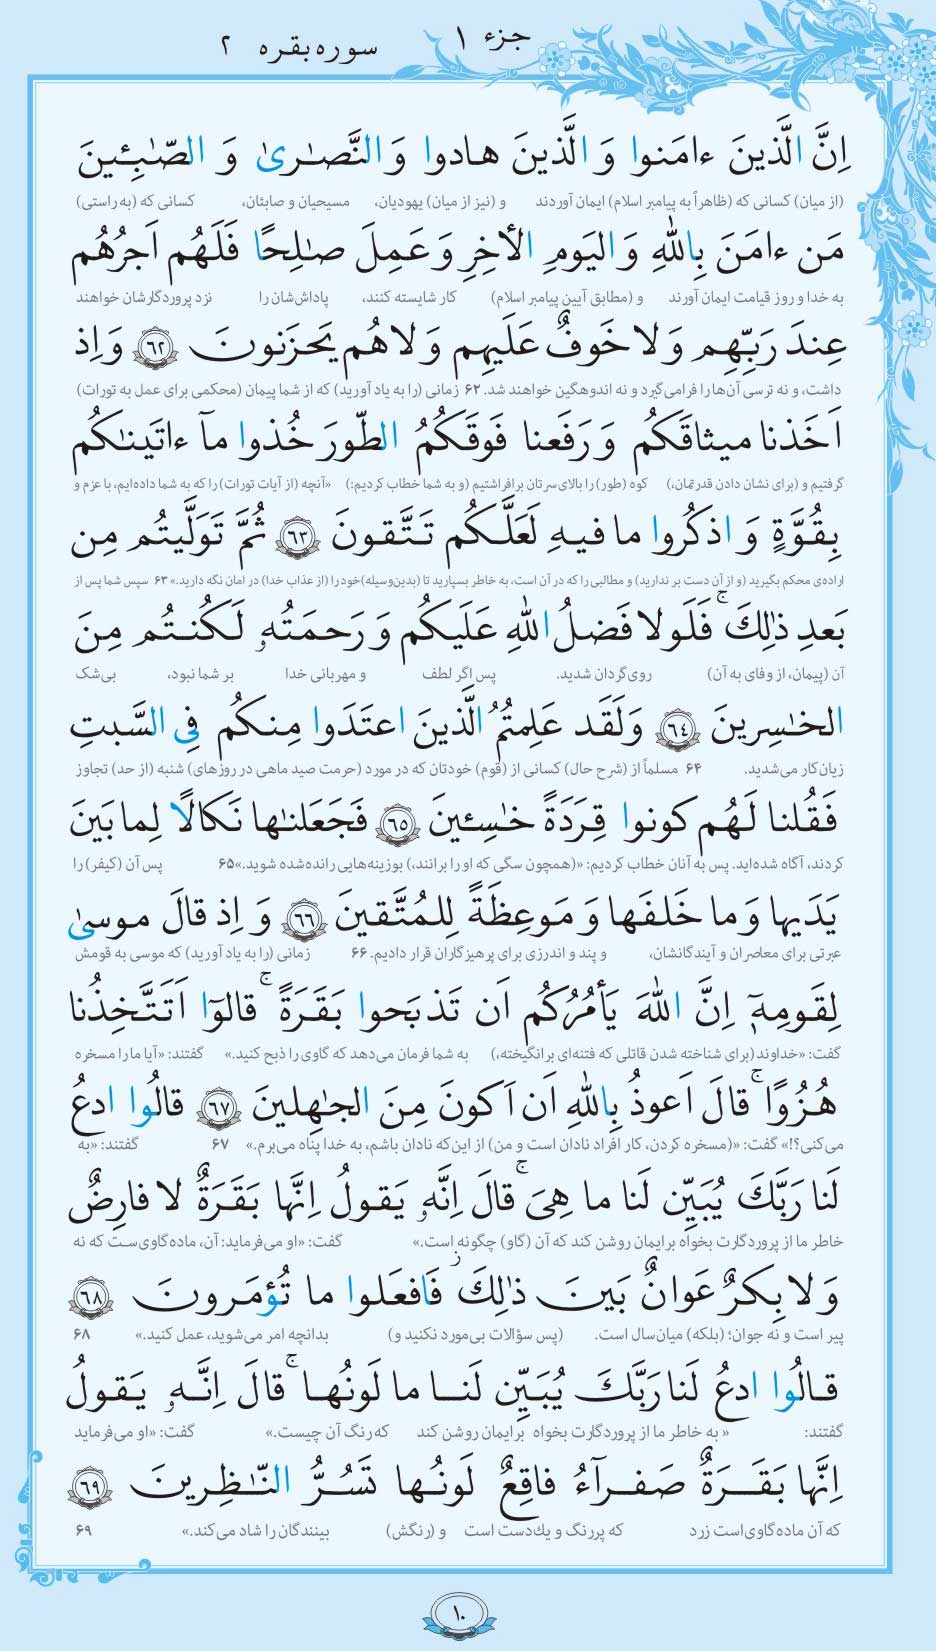 جزء ۱ سوره بقره ۲
اِنَّ الَّذینَ ءامَنوا وَ الَّذینَ هادوا وَ النَّصـٰریٰ وَ الصّـٰبِـٔینَ
(از میان) کسانی که (ظاهراً به پیامبر اسلام) ایمان آوردند و (نیز از میان) یهودیان، مسیحیان و صابئان، کسانی که (به راستی)
مَن ءامَنَ بِاللهِ وَ الیَومِ الأخِرِ وَ عَمِلَ صـٰلِحًا فَلَهُم اَجرُهُم
به خدا و روز قیامت ایمان آورند و (مطابق آیین پیامبر اسلام) کار شایسته کنند، پاداش‌شان را نزد پروردگارشان خواهند
عِندَ رَبِّهِم وَ لا خَوفٌ عَلَیهِم وَ لا هُم یَحزَنونَ ﴿٦٢﴾ وَ اِذ
داشت، و نه ترسی آن‌ها را فرامی‌گیرد و نه اندوهگین خواهند شد. ۶۲ زمانی (را به یاد آورید) که از شما پیمان (محکمی برای عمل به تورات)
اَخَذنا میثاقَکُم وَ رَفَعنا فَوقَکُمُ الطّورَ خُذوا مآ ءاتَینـٰکُم
گرفتیم و (برای نشان دادن قدرتمان،) کوه (طور) را بالای سرتان برافراشتیم (و به شما خطاب کردیم:) «آنچه (از آیات تورات) را که به شما داده‌ایم، با عزم و
بِقُوَّةٍ وَ اذکُروا ما فیهِ لَعَلَّکُم تَتَّقونَ ﴿٦٣﴾ ثُمَّ تَوَلَّیتُم مِن
اراده‌ی محکم بگیرید (و از آن دست بر ندارید) و مطالبی را که در آن است، به خاطر بسپارید تا (بدین‌وسیله) خود را (از عذاب خدا) در امان نگه دارید.» ۶۳ سپس شما پس از
بَعدِ ذٰلِکَ ۚ فَلَولا فَضلُ اللهِ عَلَیکُم وَ رَحمَتُهٗ لَکُنتُم مِنَ
آن (پیمان، از وفای به آن) روی‌گردان شدید. پس اگر لطف و مهربانی خدا بر شما نبود، بی‌شک
الخـٰسِرینَ ﴿٦٤﴾ وَ لَقَد عَلِمتُمُ الَّذینَ اعتَدَوا مِنکُم فِی السَّبتِ
زیان‌کار می‌شدید. ۶۴ مسلماً از (شرح حال) کسانی از (قوم) خودتان که در مورد (حرمت صید ماهی در روزهای) شنبه (از حد) تجاوز
فَقُلنا لَهُم کونوا قِرَدَةً خـٰسِـٔینَ ﴿٦٥﴾ فَجَعَلنـٰها نَکالًا لِما بَینَ
کردند، آگاه شده‌اید. پس به آنان خطاب کردیم: «(همچون سگی که او را برانند،) بوزینه‌هایی رانده‌شده شوید.» ۶۵ پس آن (کیفر) را
یَدَیها وَ ما خَلفَها وَ مَوعِظَةً لِلمُتَّقینَ ﴿٦٦﴾ وَ اِذ قالَ موسیٰ
عبرتی برای معاصران و آیندگانشان، و پند و اندرزی برای پرهیزگاران قرار دادیم. ۶۶ زمانی (را به یاد آورید) که موسی به قومش
لِقَومِهٖٓ اِنَّ اللهَ یَأمُرُکُم اَن تَذبَحوا بَقَرَةً ۚ قالوٓا اَتَتَّخِذُنا
گفت: «خداوند (برای شناخته شدن قاتلی که فتنه‌ای برانگیخته،) به شما فرمان می‌دهد که گاوی را ذبح کنید.» گفتند: «آیا ما را مسخره
هُزُوًا ۚ قالَ اَعوذُ بِاللهِ اَن اَکونَ مِنَ الجـٰهِلینَ ﴿٦٧﴾ قالُوا ادعُ
می‌کنی؟!» گفت: «(مسخره کردن، کار افراد نادان است و من) از این‌که نادان باشم، به خدا پناه می‌برم.» ۶۷ گفتند: «به
لَنا رَبَّکَ یُبَیِّن لَنا ما هِیَ ۚ قالَ اِنَّهٗ یَقولُ اِنَّها بَقَرَةٌ لا فارِضٌ
خاطر ما از پروردگارت بخواه برایمان روشن کند که آن (گاو) چگونه است.» گفت: «او می‌فرماید: آن، ماده‌گاوی‌ست که نه
وَ لا بِکرٌ عَوانٌ بَینَ ذٰلِکَ ز فَافعَلوا ما تُؤمَرونَ ﴿٦٨﴾
پیر است و نه جوان؛ (بلکه) میان‌سال است. (پس سؤالات بی‌مورد نکنید و) بدانچه امر می‌شوید، عمل کنید.» ۶۸
قالُوا ادعُ لَنا رَبَّکَ یُبَیِّن لَنا ما لَونُها ۚ قالَ اِنَّهٗ یَقولُ
گفتند: «به خاطر ما از پروردگارت بخواه برایمان روشن کند که رنگ آن چیست.» گفت: «او می‌فرماید
اِنَّها بَقَرَةٌ صَفرآءُ فاقِعٌ لَونُها تَسُرُّ النّـٰظِرینَ ﴿٦٩﴾
که آن ماده‌گاوی‌است زرد که پررنگ و یك‌دست است و (رنگش) بینندگان را شاد می‌کند.» ۶۹
۱۰